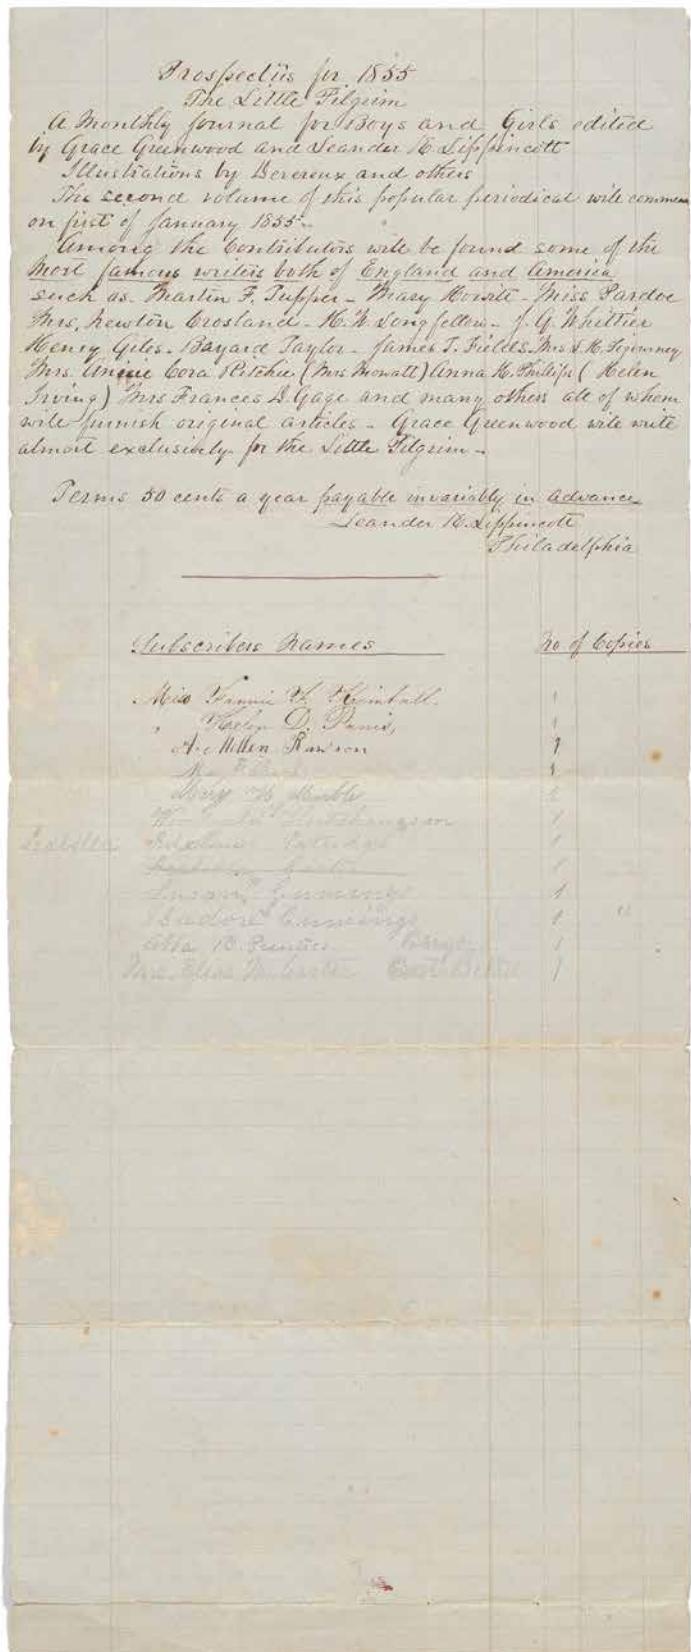 Prospectus for 1855
The Little Pilgrim
A Monthly Journal for Boys and Girls edited
by Grace Greenwood and Leander K. Lippincott
Illustrations by Devereux and others
The second volume of this popular periodical will commence
on first of January 1855 -
Among the Contributors will be found some of the
most famous writers both of England and America
such as Martin F. Tupper - Mary Howitt - Miss Pardoe
Mrs. Newton Crosland - H. W. Longfellow - J. G. Whittier
Henry Giles - Bayard Taylor - James T. Fields - Mrs L. H. Sigourney
Mrs. Anna Cora Ritchie (Mrs Mowatt) Anna H. Phillips (Helen
Irving) Mrs Frances D. Gage and many others all of whom
will furnish original articles - Grace Greenwood will write
almost exclusively for the Little Pilgrim -
Terms 50 cents a year payable invariably in advance
Leander K. Lippincott
Philadelphia
Subscribers Names No of Copies
Miss Fannie Kimball. 1
" Helen D. 1
A. Millen Rawson 1
1
Mary 1
1
Isabella Partridge 1
1
Susan Cummings 1
Isadore Cummings 1 "
Abba B. 1
Mrs. Eliza East 1